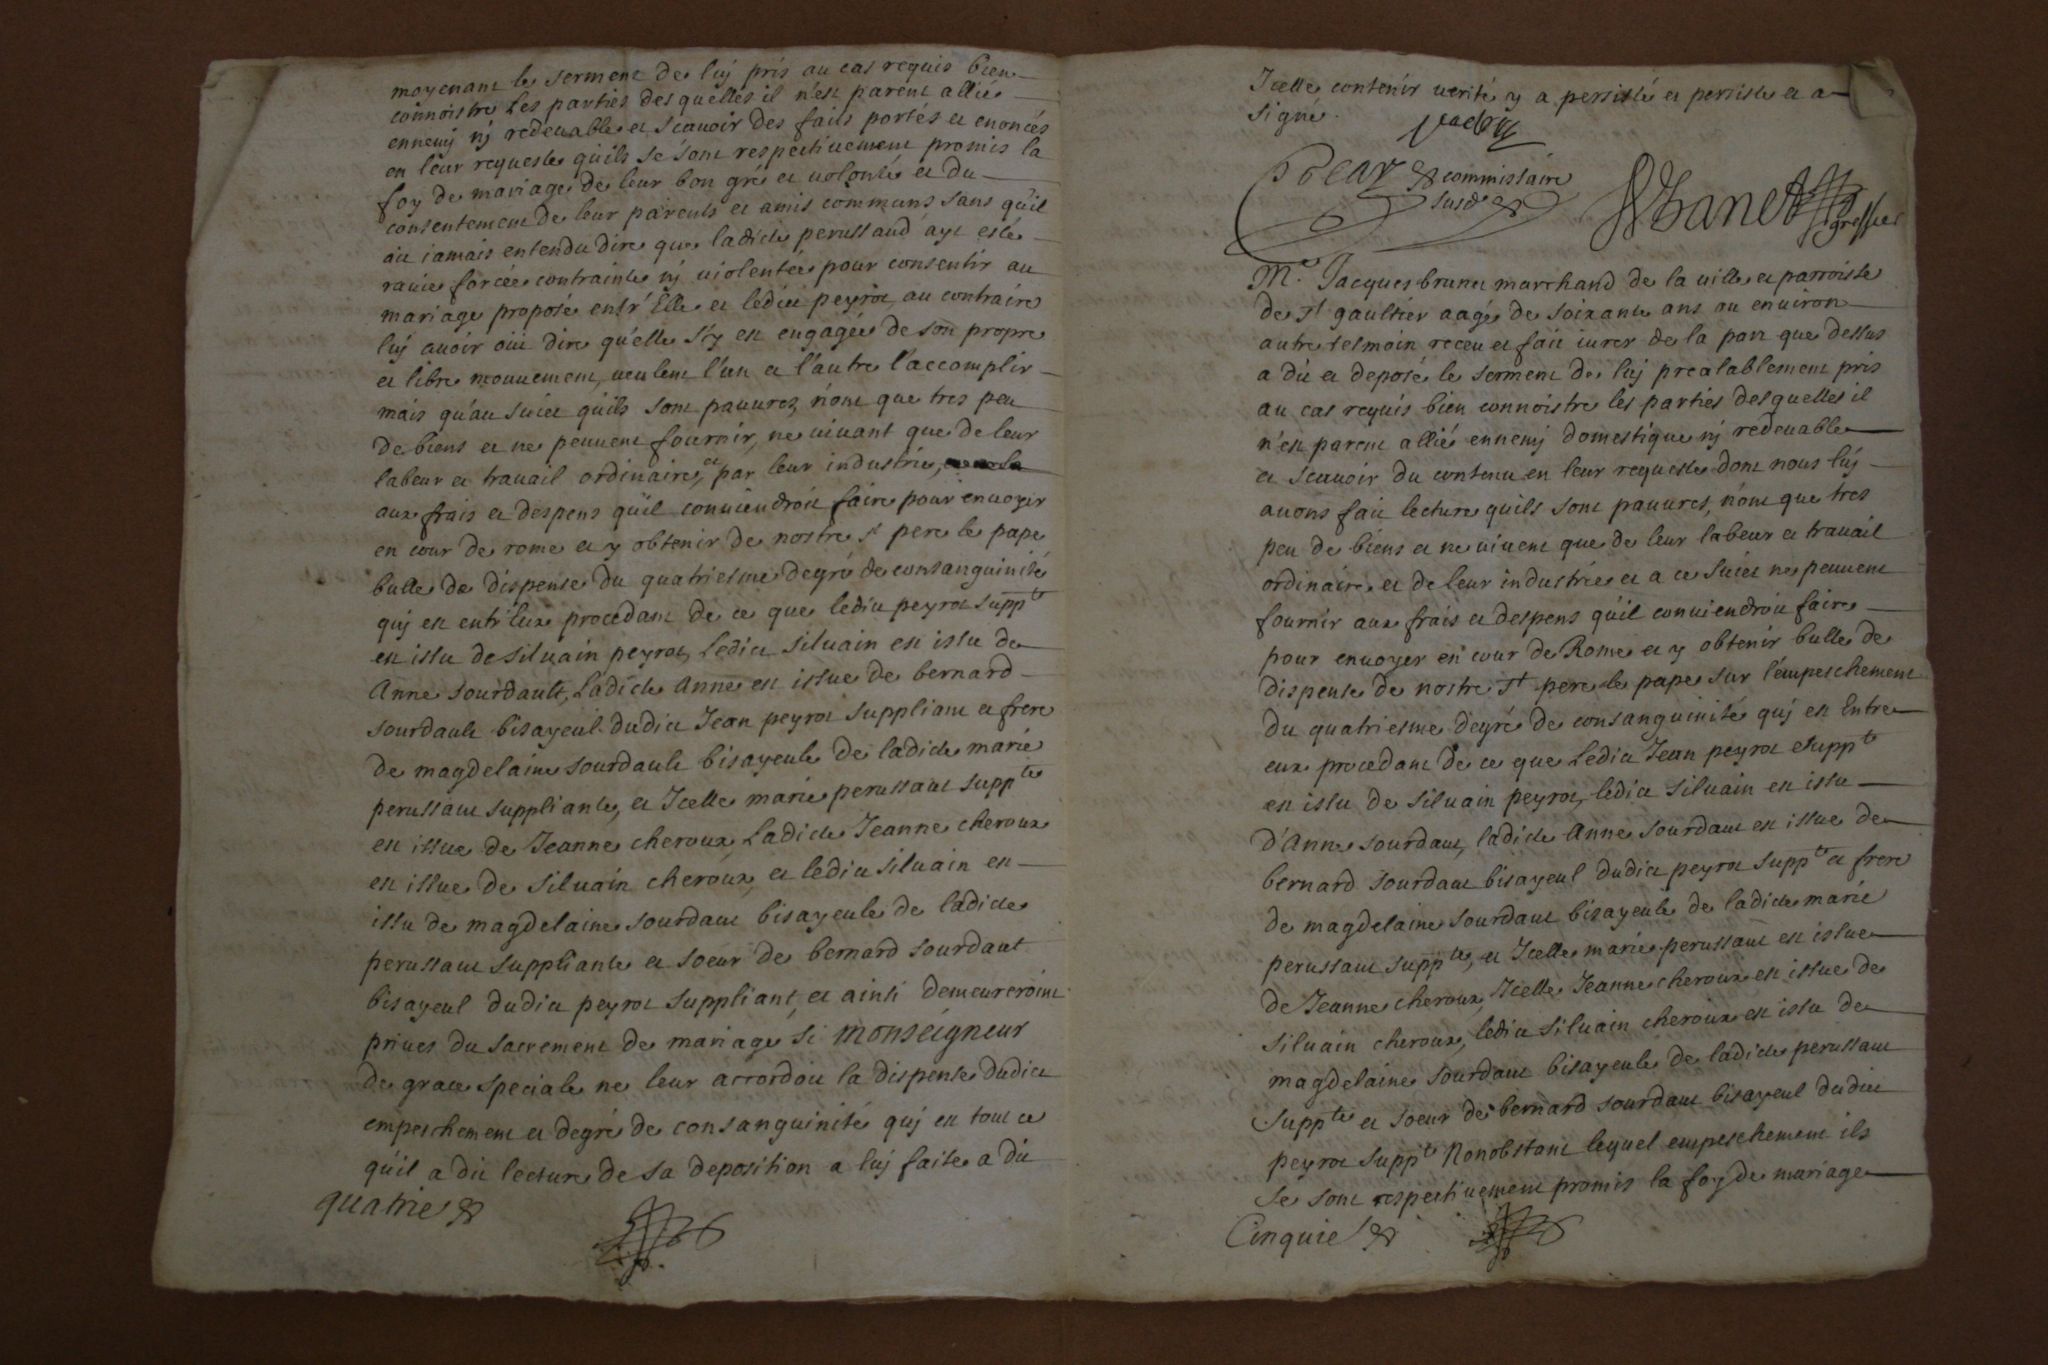 moyenant le serment de luy pris au cas requis bien
connoistre les parties desquelles il n'est parent allié
ennemy ny redevable et scavoir des faits portés et enoncés
en leur requeste quils se sont respectivement promis la
foy de mariage de leur bon gré et volonté et du
consentement de leur parents et amis communs sans qu'il
ait iamais entendu dire que ladicte perussaud ayt esté
ravie forcée contrainte ny violentée pour consentir au
mariage proposé entr'Elle et ledict peyrot, au contraire
luy avoir oui dire qu'elle s'y est engagée de son propre
et libre mouvement, veulent l'un et l'autre l'accomplir
mais qu'au suiet quils sont pauvres, n'ont que tres peu
de biens et ne peuvent fournir, ne vivant que de leur
labeur et travail ordinaire, et par leur industrie,
aux frais et despens qu'il conviendroit faire pour envoyer
en cour de rome et y obtenir de nostre st pere le pape
bulle de dispense du quatriesme degré de consanguinité
quy est entr'Eux procedant de ce que ledict peyrot suppt
est issu de silvain peyrot, Ledict silvain est issu de
Anne sourdault, Ladicte Anne est issue de bernard
sourdault bisayeul dudict Jean peyrot suppliant et frere
de magdelaine sourdault bisayeule de ladicte marie
perussaut suppliante, et Icelle marie perussaut suppte
est issue de Jeanne cheroux, Ladicte Jeanne cheroux
est issue de silvain cheroux, et ledict silvain est
issu de magdelaine sourdaut bisayeule de ladicte
perussaut suppliante et soeur de bernard sourdaut
bisayeul dudict peyrot suppliant, et ainsi demeureroint
prives du sacrement de mariage si monseigneur
de grace speciale ne leur accordoit la dispense dudict
empeschement et degré de consanguinité quy est tout ce
qu'il a dit lecture de sa deposition a luy faite a dit
quatrie
Icelle contenir verité y a persisté et persiste et a
signé.
commissaire
susd
greffier
Me Jacques brunet marchand de la ville et parroisse
de st gaultier aagé de soixante ans ou environ
autre tesmoin receu et fait iurer de la part que dessus
a dit et deposé le serment de luy prealablement pris
au cas requis bien connoistre les parties desquelles il
n'est parent allié ennemy domestique ny redevable
et scavoir du contenu en leur requeste dont nous luy
avons fait lecture quils sont pauvres, n'ont que tres
peu de biens et ne vivent que de leur labeur et travail
ordinaire et de leur industrie et a ce suiet ne peuvent
fournir aux frais et despens qu'il conviendroit faire
pour envoyer en cour de Rome et y obtenir bulle de
dispense de nostre st pere le pape sur l'empeschement
du quatriesme degré de consanguinité quy est Entre
eux procedant de ce que Ledict Jean peyrot suppt
est issu de silvain peyrot, ledict silvain est issu
d'Anne sourdaut, ladicte Anne sourdaut est issue de
bernard sourdaut bisayeul dudict peyrot suppt et frere
de magdelaine sourdaut bisayeule de ladicte marie
perussaut suppte, et Icelle marie perussaut est issue
de Jeanne cheroux, Icelle Jeanne cheroux est issue de
silvain cheroux, ledict silvain cheroux est issu de
magdelaine sourdaut bisayeule de ladicte perussaut
suppte et soeur de bernard sourdaut bisayeul dudict
peyrot suppt Nonobstant lequel empeschement ils
se sont respectivement promis la foy de mariage
Cinquie